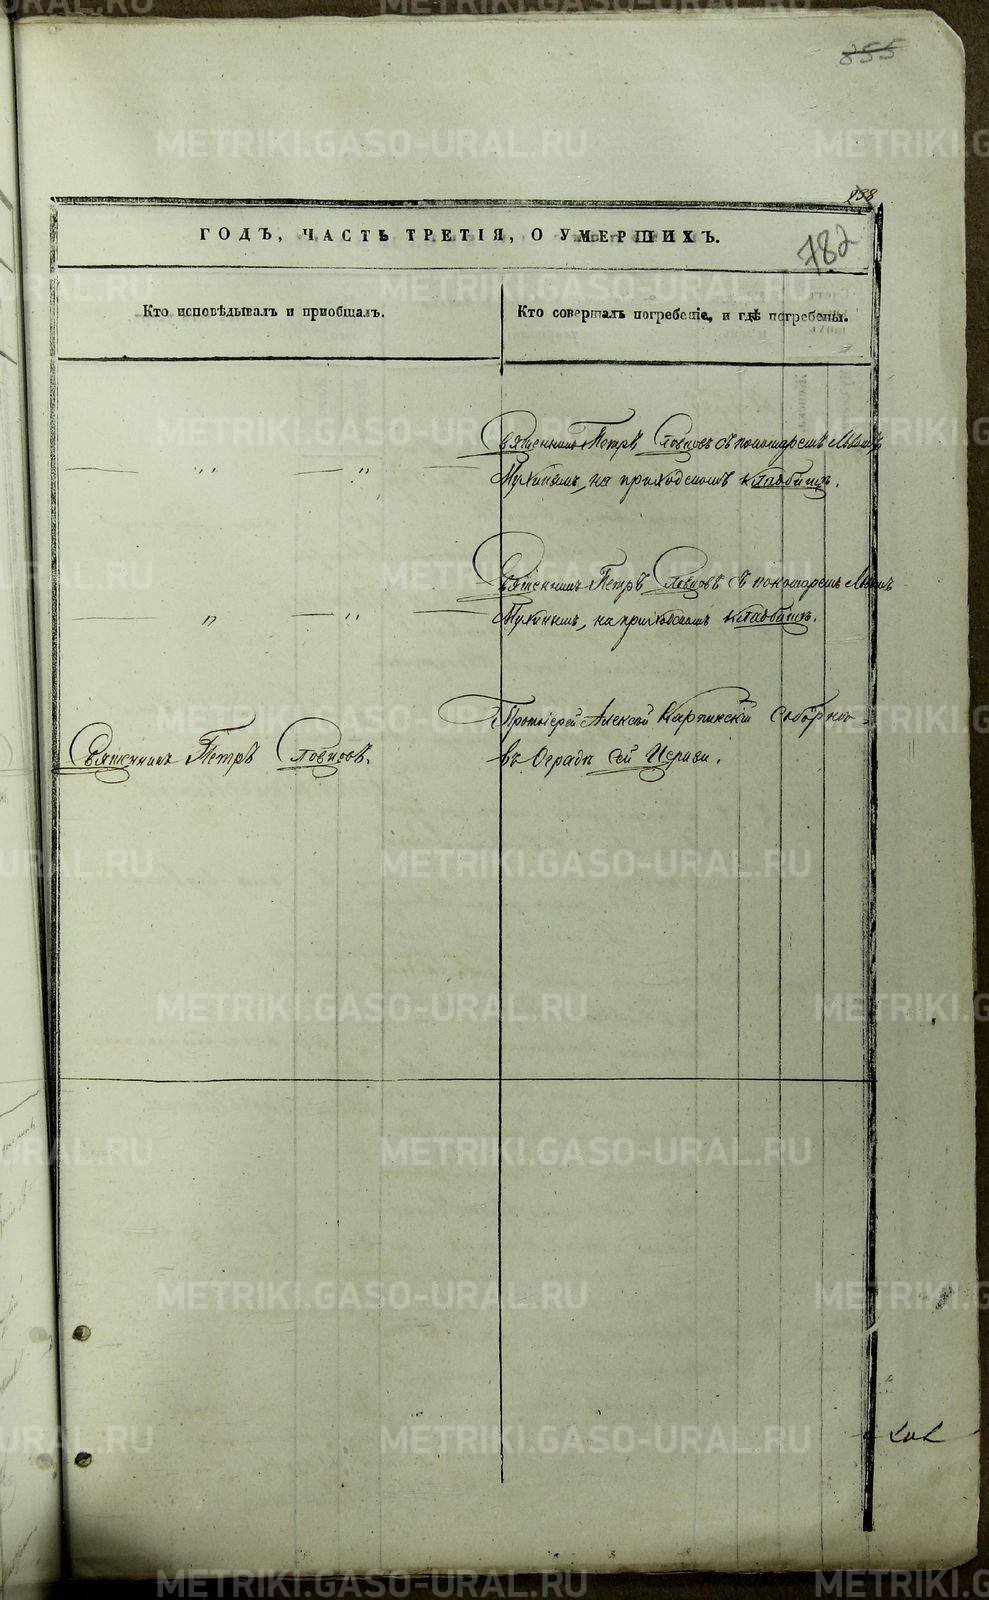 855
238
ГОДЪ, ЧАСТЬ ТРЕТІЯ, О УМЕРШИХЪ.
782
Кто исповѣдывалъ и приобщалъ.
Кто совершалъ погребеніе, и гдѣ погребены.
Священникъ Петръ Словцовъ съ пономаремъ
Мухинымъ, на приходскомъ кладбищѣ.
Священникъ Петръ Словцовъ съ пономаремъ
Мухинымъ, на приходскомъ кладбищѣ.
Протоіерей Алексѣй Карпинскій соборнѣ
въ Оградѣ сей Церкви.
Священникъ Петръ Словцовъ.
METRIKI.GASO-URAL.RU